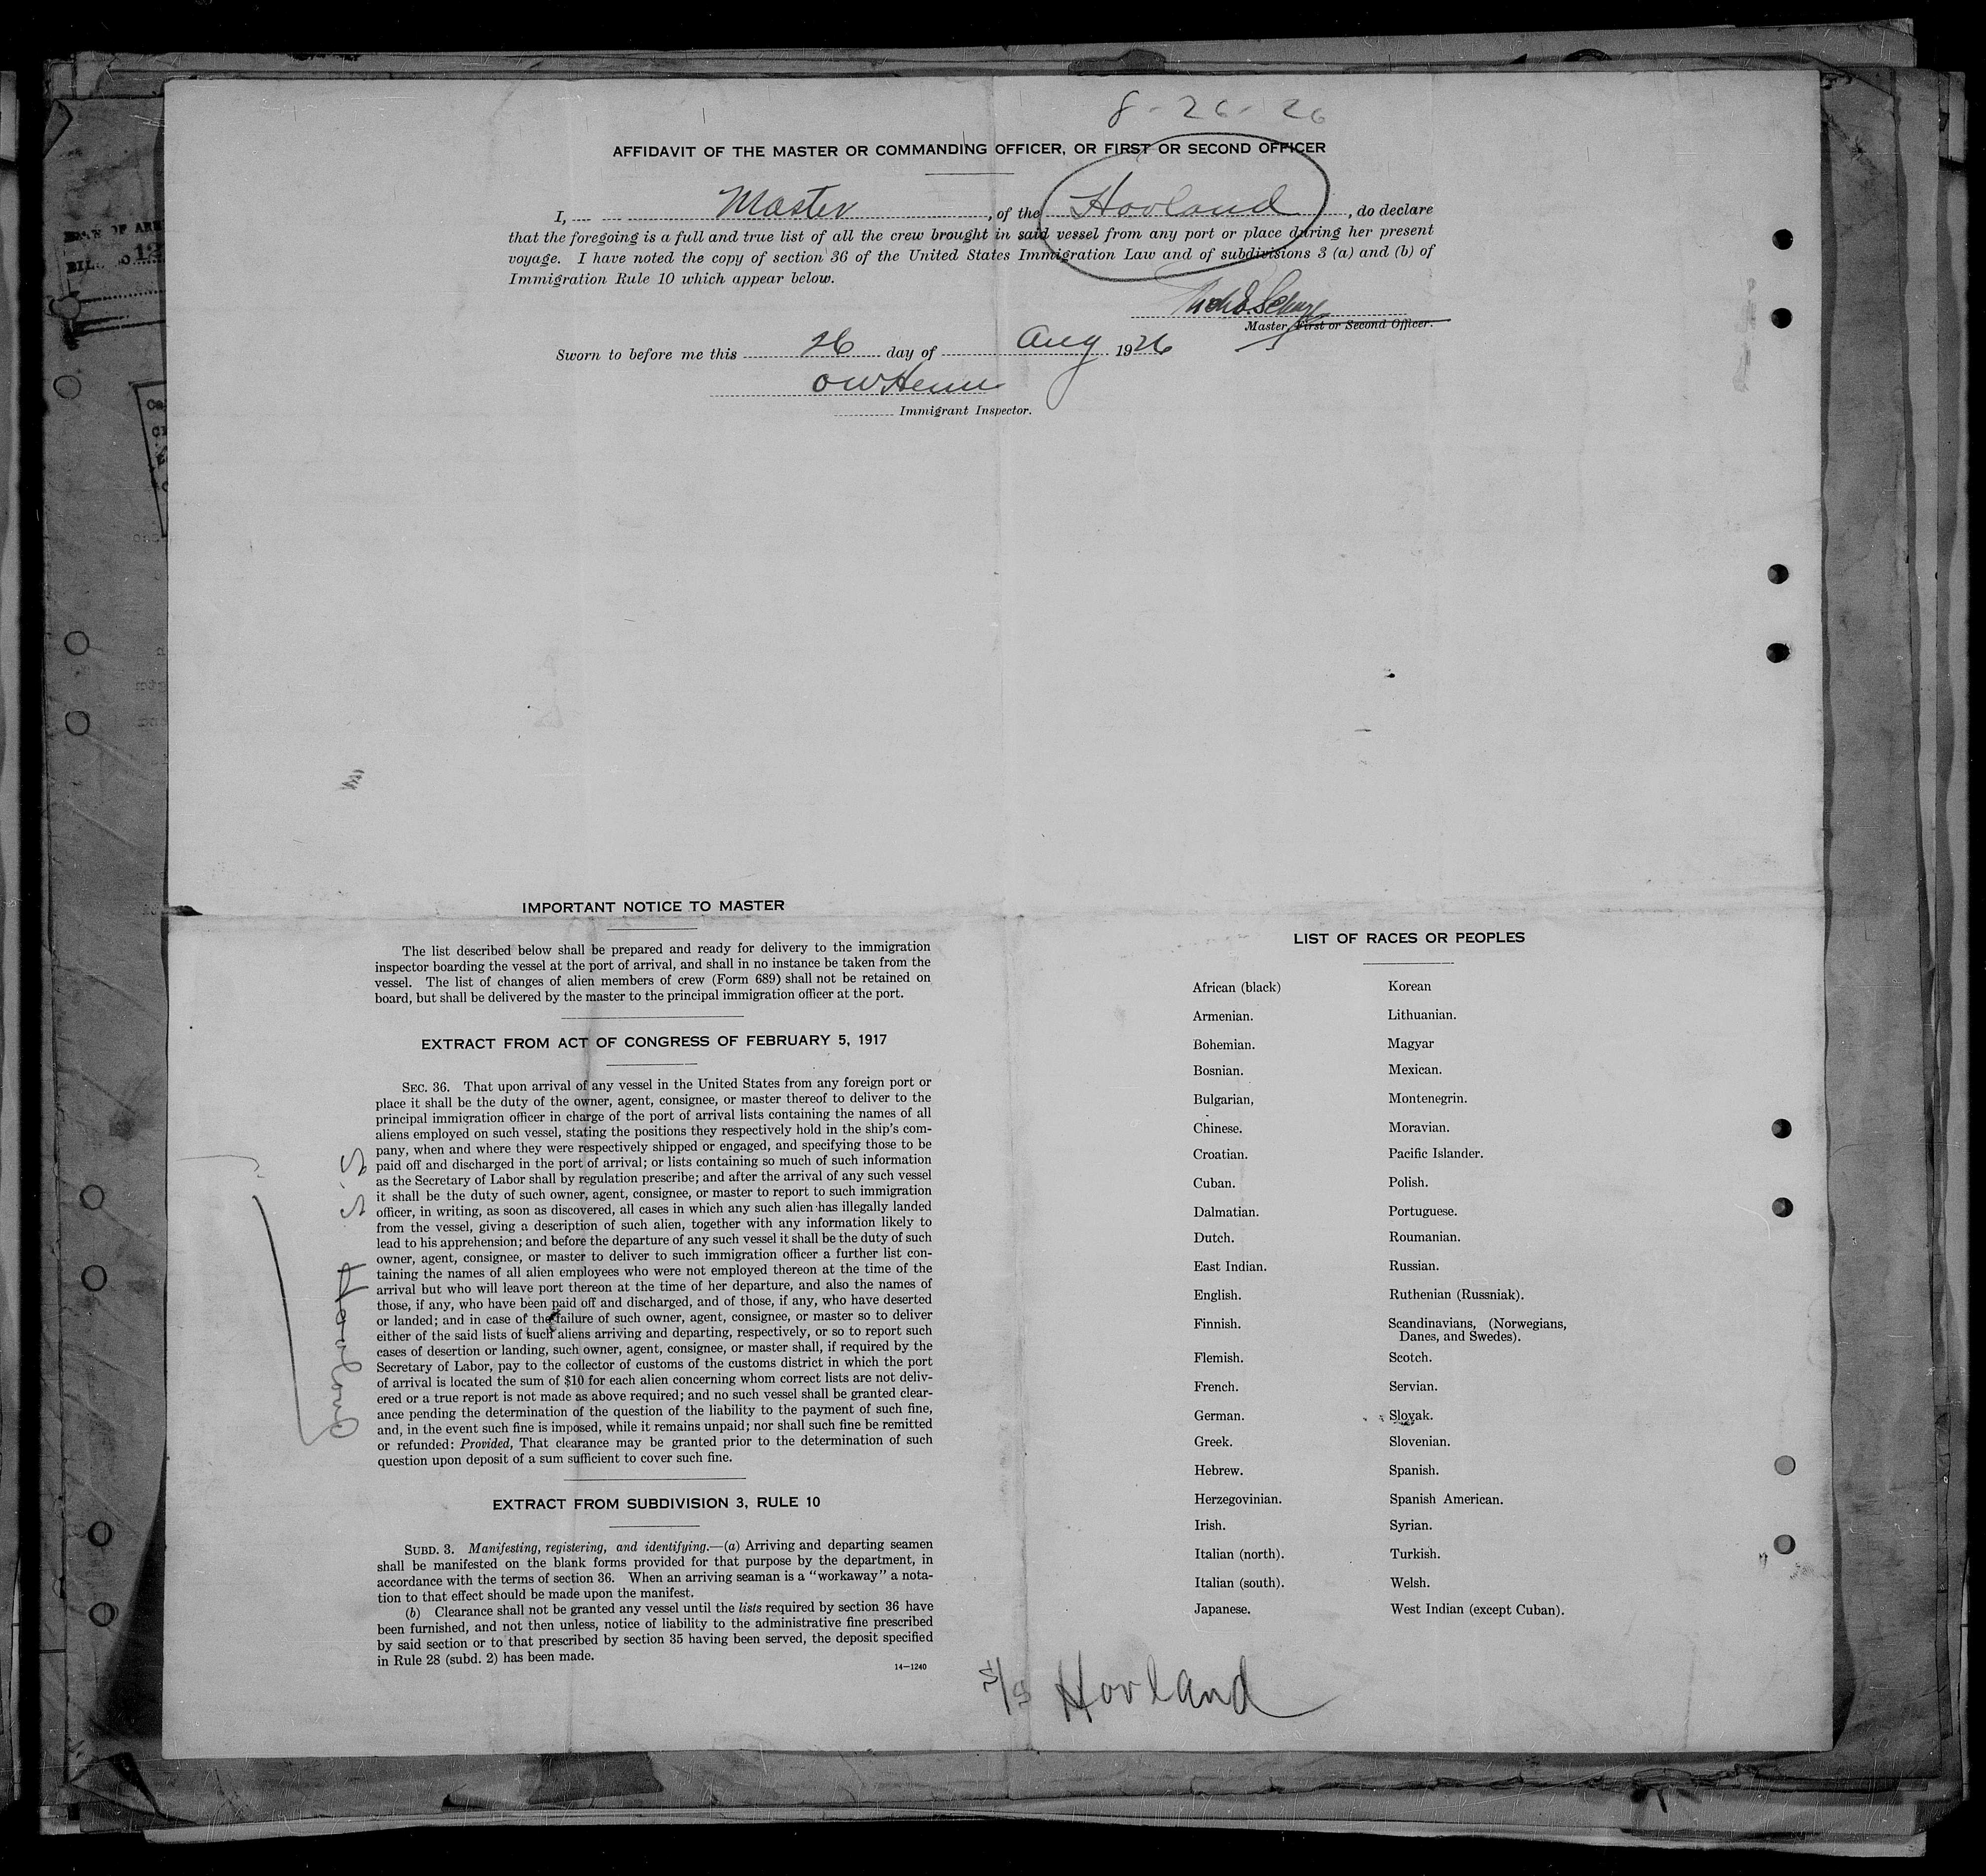 8-26-26
AFFIDAVIT OF THE MASTER OR COMMANDING OFFICER, OR FIRST OR SECOND OFFICER
I, Master, of the Hovland, do declare
that the foregoing is a full and true list of all the crew brought in said vessel from any port or place during her present
voyage. I have noted the copy of section 36 of the United States Immigration Law and of subdivisions 3 (a) and (b) of
Immigration Rule 10 which appear below.
Master, First or Second Officer.
Sworn to before me this 26 day of Aug 1926
Immigrant Inspector.
IMPORTANT NOTICE TO MASTER
The list described below shall be prepared and ready for delivery to the immigration
inspector boarding the vessel at the port of arrival, and shall in no instance be taken from the
vessel. The list of changes of alien members of crew (Form 689) shall not be retained on
board, but shall be delivered by the master to the principal immigration officer at the port.
EXTRACT FROM ACT OF CONGRESS OF FEBRUARY 5, 1917
SEC. 36. That upon arrival of any vessel in the United States from any foreign port or
place it shall be the duty of the owner, agent, consignee, or master thereof to deliver to the
principal immigration officer in charge of the port of arrival lists containing the names of all
aliens employed on such vessel, stating the positions they respectively hold in the ship's com-
pany, when and where they were respectively shipped or engaged, and specifying those to be
paid off and discharged in the port of arrival; or lists containing so much of such information
as the Secretary of Labor shall by regulation prescribe; and after the arrival of any such vessel
it shall be the duty of such owner, agent, consignee, or master to report to such immigration
officer, in writing, as soon as discovered, all cases in which any such alien has illegally landed
from the vessel, giving a description of such alien, together with any information likely to
lead to his apprehension; and before the departure of any such vessel it shall be the duty of such
owner, agent, consignee, or master to deliver to such immigration officer a further list con-
taining the names of all alien employees who were not employed thereon at the time of the
arrival but who will leave port thereon at the time of her departure, and also the names of
those, if any, who have been paid off and discharged, and of those, if any, who have deserted
or landed; and in case of the failure of such owner, agent, consignee, or master so to deliver
either of the said lists of such aliens arriving and departing, respectively, or so to report such
cases of desertion or landing, such owner, agent, consignee, or master shall, if required by the
Secretary of Labor, pay to the collector of customs of the customs district in which the port
of arrival is located the sum of $10 for each alien concerning whom correct lists are not deliv-
ered or a true report is not made as above required; and no such vessel shall be granted clear-
ance pending the determination of the question of the liability to the payment of such fine,
and, in the event such fine is imposed, while it remains unpaid; nor shall such fine be remitted
or refunded: Provided, That clearance may be granted prior to the determination of such
question upon deposit of a sum sufficient to cover such fine.
EXTRACT FROM SUBDIVISION 3, RULE 10
SUBD. 3. Manifesting, registering, and identifying.—(a) Arriving and departing seamen
shall be manifested on the blank forms provided for that purpose by the department, in
accordance with the terms of section 36. When an arriving seaman is a "workaway" a nota-
tion to that effect should be made upon the manifest.
(b) Clearance shall not be granted any vessel until the lists required by section 36 have
been furnished, and not then unless, notice of liability to the administrative fine prescribed
by said section or to that prescribed by section 35 having been served, the deposit specified
in Rule 28 (subd. 2) has been made.
14-1240
S.S. Hovland
LIST OF RACES OR PEOPLES
African (black)
Armenian.
Bohemian.
Bosnian.
Bulgarian,
Chinese.
Croatian.
Cuban.
Dalmatian.
Dutch.
East Indian.
English.
Finnish.
Flemish.
French.
German.
Greek.
Hebrew.
Herzegovinian.
Irish.
Italian (north).
Italian (south).
Japanese.
Korean
Lithuanian.
Magyar
Mexican.
Montenegrin.
Moravian.
Pacific Islander.
Polish.
Portuguese.
Roumanian.
Russian.
Ruthenian (Russniak).
Scandinavians, (Norwegians,
Danes, and Swedes).
Scotch.
Servian.
Slovak.
Slovenian.
Spanish.
Spanish American.
Syrian.
Turkish.
Welsh.
West Indian (except Cuban).
S/S Hovland